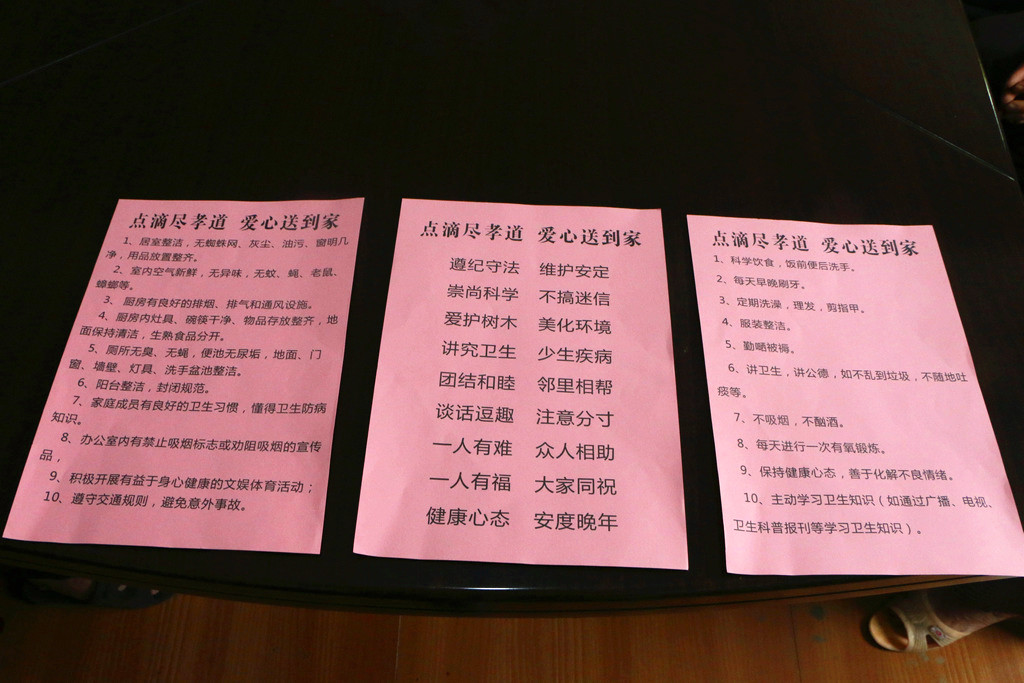 点滴尽孝道 爱心送到家
1、居室整洁，无蜘蛛网、灰尘、油污、窗明几
净，用品放置整齐。
2、室内空气新鲜，无异味，无蚊、蝇、老鼠、
蟑螂等。
3、厨房有良好的排烟、排气和通风设施。
4、厨房内灶具、碗筷干净、物品存放整齐，地
面保持清洁，生熟食品分开。
5、厕所无臭、无蝇，便池无尿垢，地面、门
窗、墙壁、灯具、洗手盆池整洁。
6、阳台整洁，封闭规范。
7、家庭成员有良好的卫生习惯，懂得卫生防病
知识。
8、办公室内有禁止吸烟标志或劝阻吸烟的宣传
品，
9、积极开展有益于身心健康的文娱体育活动；
10、遵守交通规则，避免意外事故。
点滴尽孝道 爱心送到家
遵纪守法 维护安定
崇尚科学 不搞迷信
爱护树木 美化环境
讲究卫生 少生疾病
团结和睦 邻里相帮
谈话逗趣 注意分寸
一人有难 众人相助
一人有福 大家同祝
健康心态 安度晚年
点滴尽孝道 爱心送到家
1、科学饮食，饭前便后洗手。
2、每天早晚刷牙。
3、定期洗澡，理发，剪指甲。
4、服装整洁。
5、勤嗮被褥。
6、讲卫生，讲公德，如不乱到垃圾，不随地吐
痰等。
7、不吸烟，不酗酒。
8、每天进行一次有氧锻炼。
9、保持健康心态，善于化解不良情绪。
10、主动学习卫生知识（如通过广播、电视、
卫生科普报刊等学习卫生知识）。